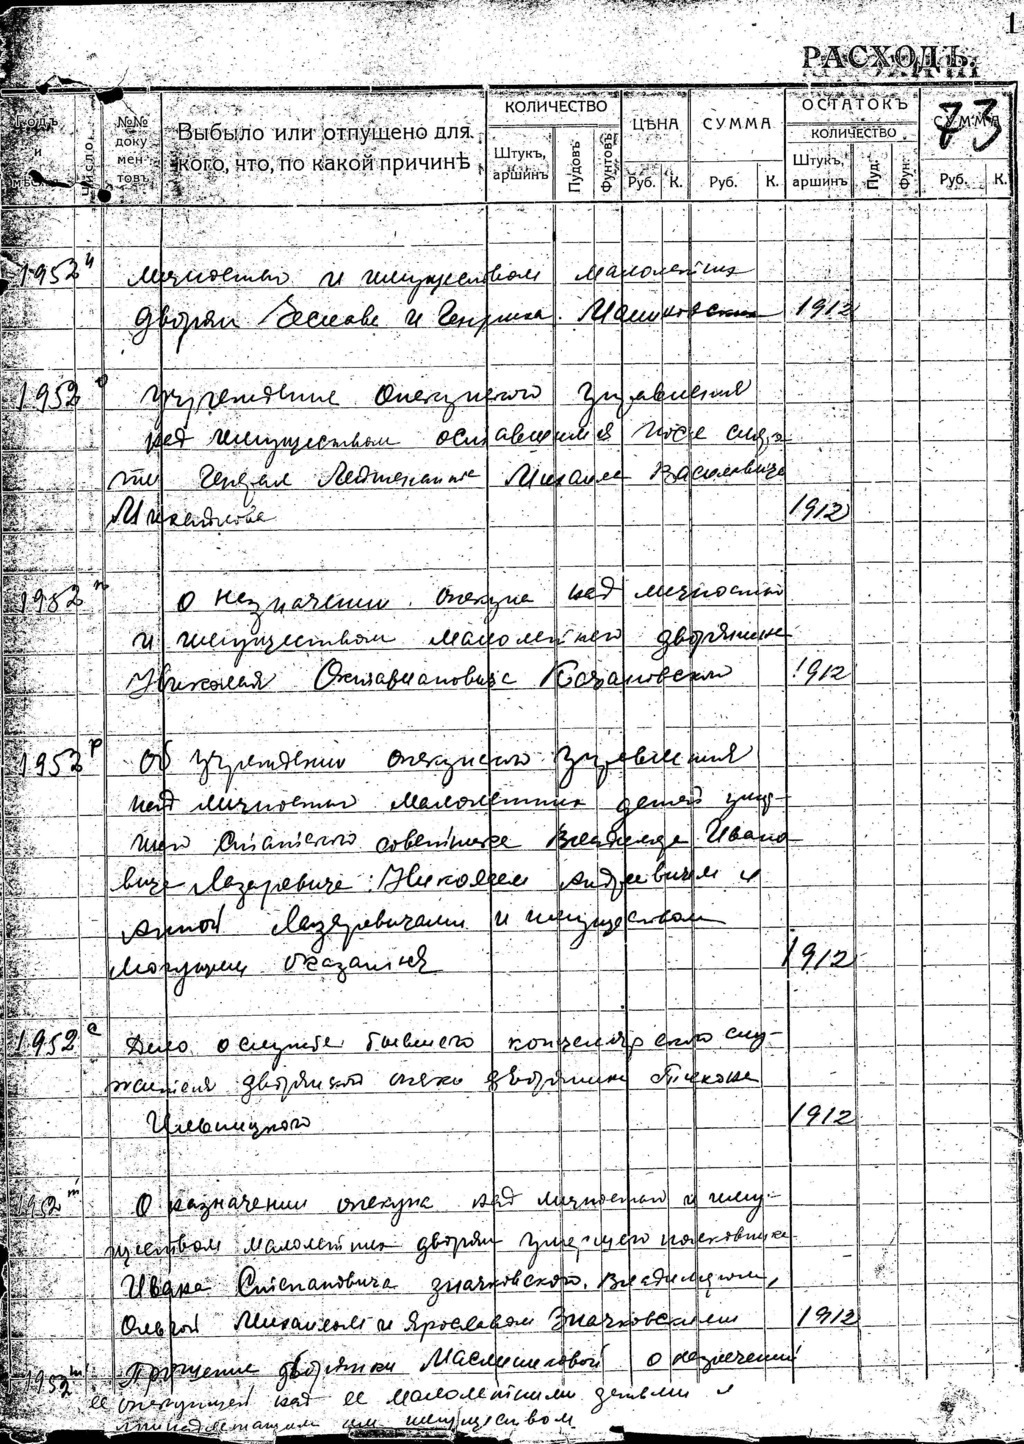 1
РАСХОДЪ.
73
Годъ и мѣсяцъ
Число.
№№ доку мен- товъ
Выбыло или отпущено для кого, что, по какой причинѣ
КОЛИЧЕСТВО
Штукъ, аршинъ
Пудовъ
Фунтовъ
ЦѢНА
Руб. К.
СУММА
Руб. К.
ОСТАТОКЪ
КОЛИЧЕСТВО
Штукъ, аршинъ
Пуд.
Фун.
СУММА
Руб. К.
1952 личностью и имуществом малолетних
дворян Чеслава и Генриха 1912
1952 о Учреждение Опекунского Управления
над имуществом оставшимся после смер-
ти Генерал Лейтенанта Михаила Васильевича
1912
1952 п О назначении опекуна над личностью
и имуществом малолетнего дворянина
Николая Октавиановича 1912
1952 р Об учреждении опекунского управления
над личностью малолетних детей умер-
шего Статского советника Владимира Ивано
вича Лазаревича: Николаем Андреевичем и
Анной Лазаревичами и имуществом
могущем оказаться 1912
1952 с Дело о службе бывшего канцелярского слу-
жителя дворянской опеки дворянина
1912
1952 т О назначении опекуна над личностью и иму-
ществом малолетних дворян умершего полковника
Ивана Степановича Значковского, Владимиром,
Ольгой Михаилом и Ярославом Значковскими 1912
1952 Прошение дворянки Масленниковой о назначении
ее опекуншей над ее малолетними детьми и
принадлежащим им имуществом